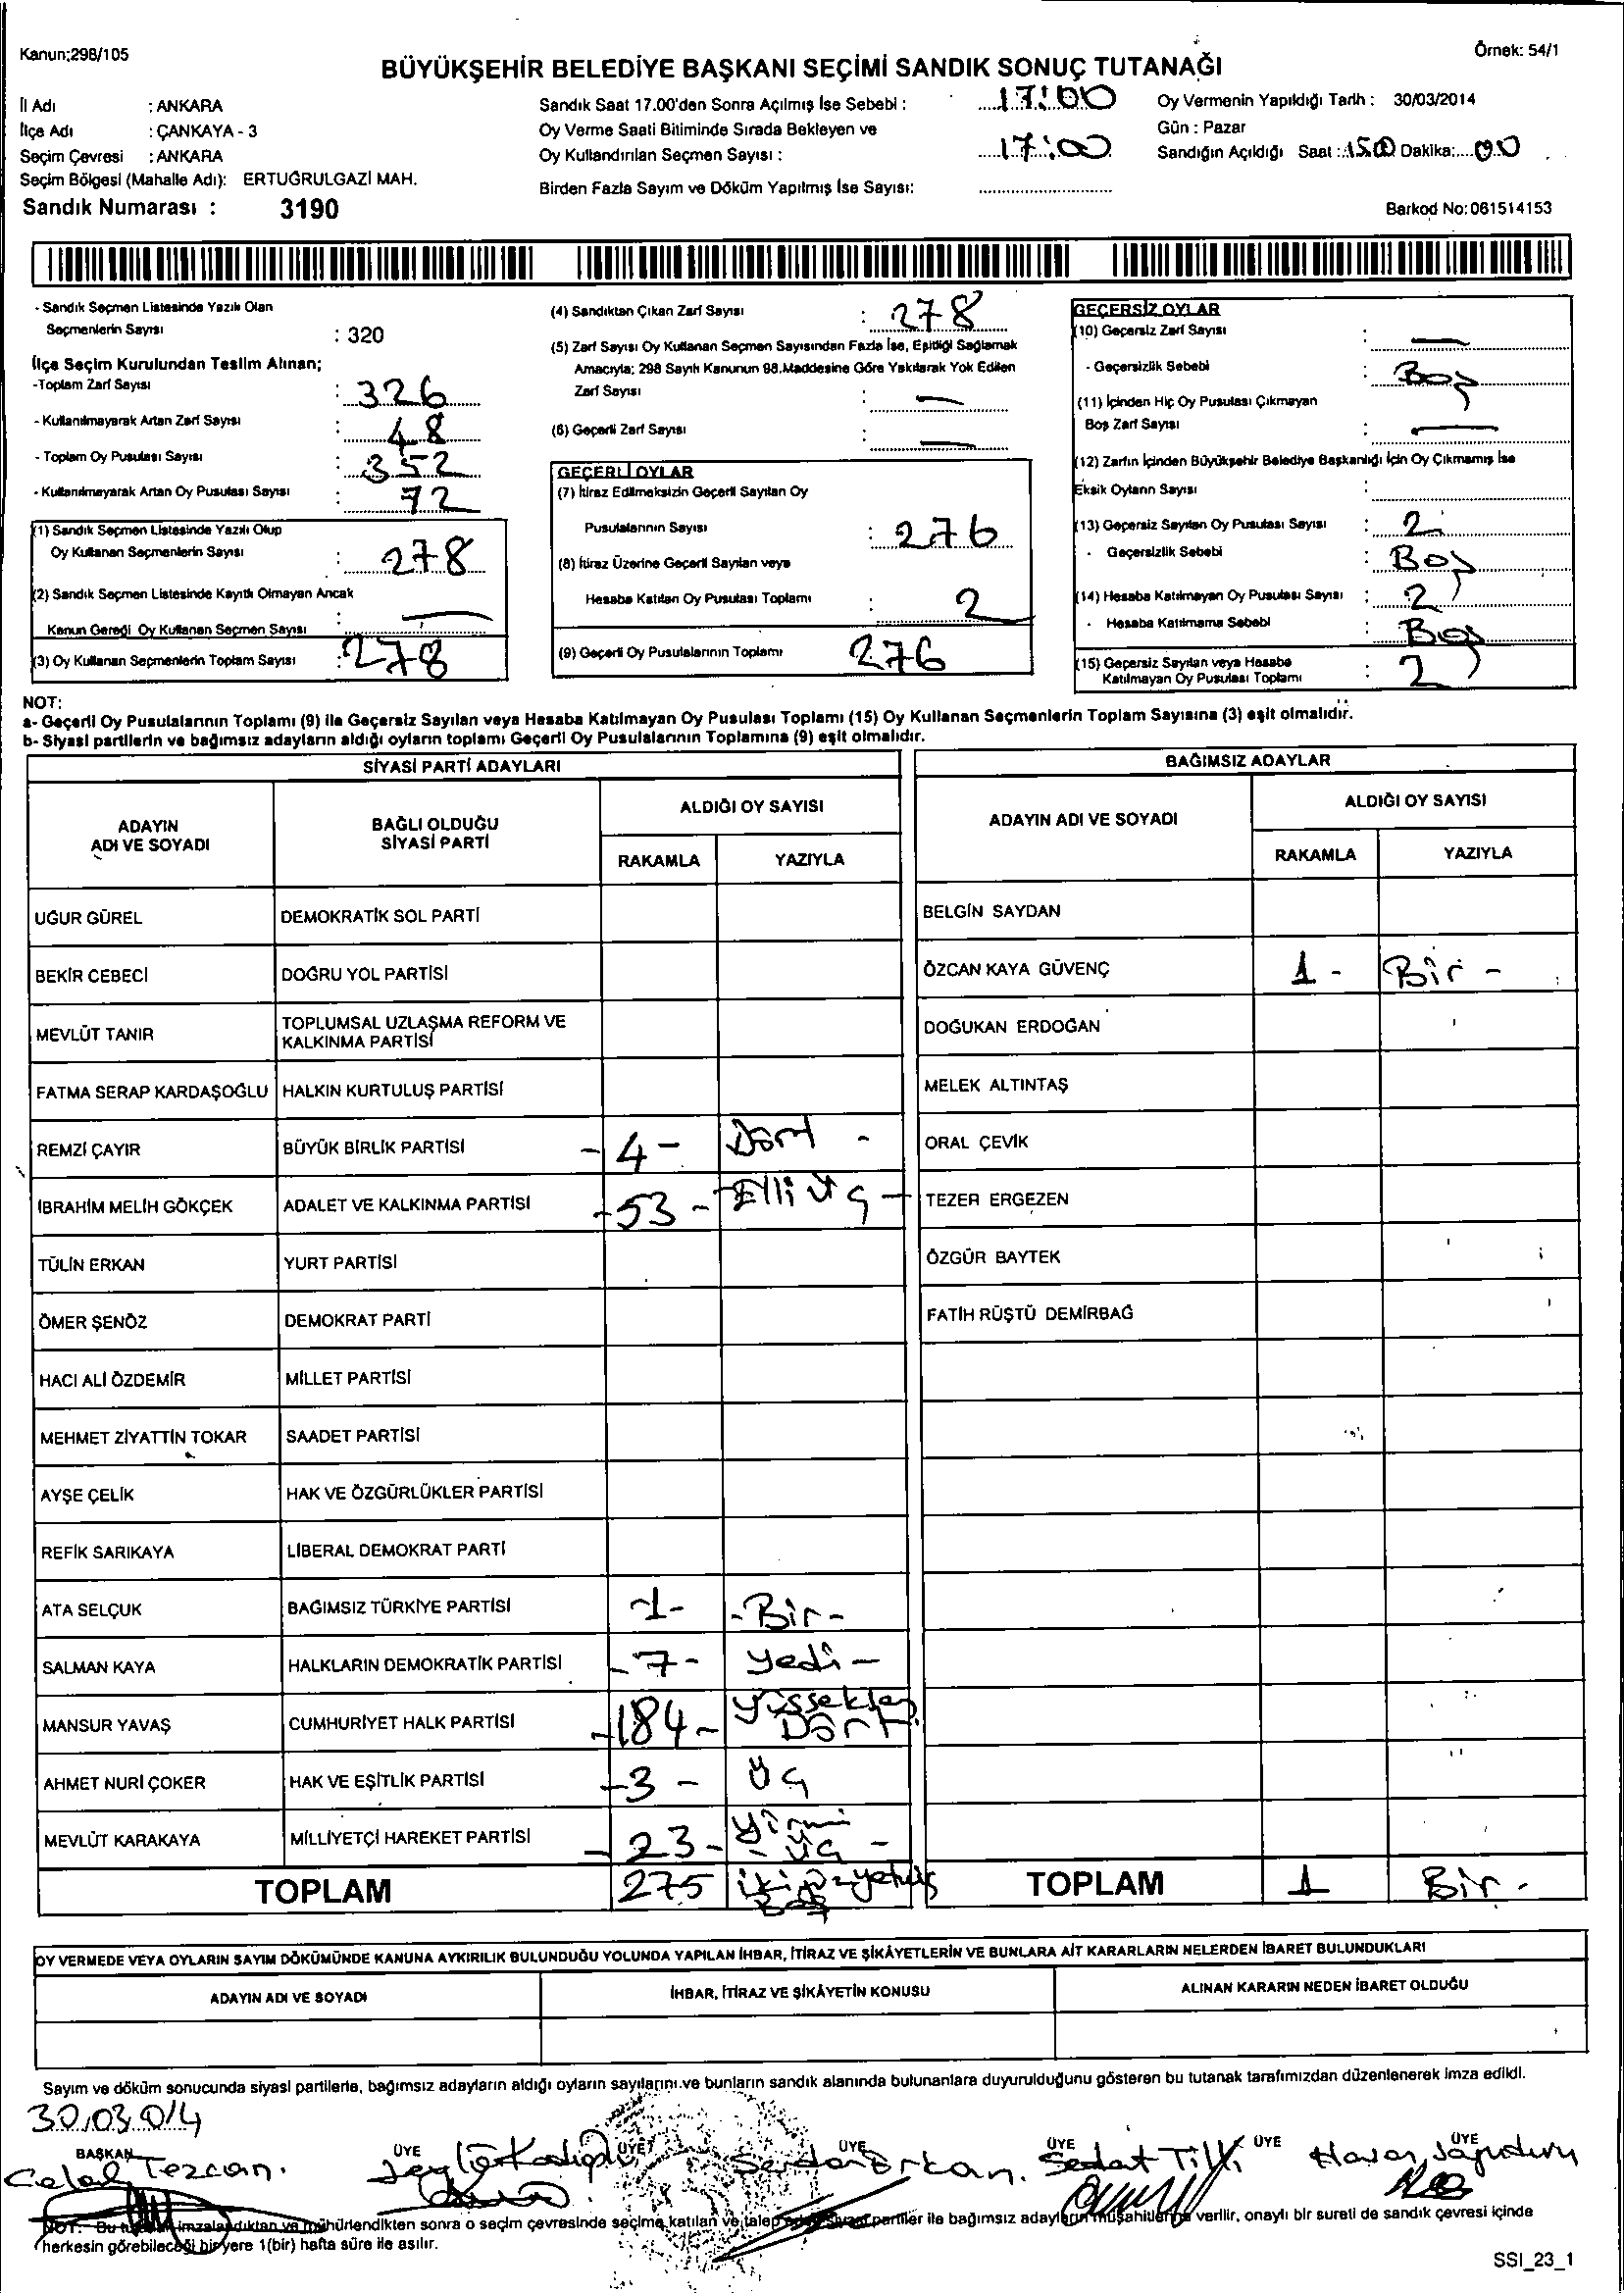 Kanun;298/105
Örnek: 54/1
BÜYÜKŞEHİR BELEDİYE BAŞKANI SEÇİMİ SANDIK SONUÇ TUTANAĞI
İl Adı : ANKARA
İlçe Adı : ÇANKAYA - 3
Seçim Çevresi : ANKARA
Seçim Bölgesi (Mahalle Adı): ERTUĞRULGAZİ MAH.
Sandık Numarası : 3190
Sandık Saat 17.00'den Sonra Açılmış İse Sebebi : 17:00
Oy Verme Saati Bitiminde Sırada Bekleyen ve
Oy Kullandırılan Seçmen Sayısı : 17:00
Birden Fazla Sayım ve Döküm Yapılmış İse Sayısı:
Oy Vermenin Yapıldığı Tarih : 30/03/2014
Gün : Pazar
Sandığın Açıldığı Saat : Dakika:
Barkod No:061514153
- Sandık Seçmen Listesinde Yazılı Olan
Seçmenlerin Sayısı : 320
İlçe Seçim Kurulundan Teslim Alınan;
-Toplam Zarf Sayısı : 326
- Kullanılmayarak Artan Zarf Sayısı : 48
- Toplam Oy Pusulası Sayısı : 352
- Kullanılmayarak Artan Oy Pusulası Sayısı : 72
(1) Sandık Seçmen Listesinde Yazılı Olup
Oy Kullanan Seçmenlerin Sayısı : 278
(2) Sandık Seçmen Listesinde Kayıtlı Olmayan Ancak
Kanun Gereği Oy Kullanan Seçmen Sayısı : —
(3) Oy Kullanan Seçmenlerin Toplam Sayısı : 278
(4) Sandıktan Çıkan Zarf Sayısı : 278
(5) Zarf Sayısı Oy Kullanan Seçmen Sayısından Fazla İse, Eşitliği Sağlamak
Amacıyla; 298 Sayılı Kanunun 98.Maddesine Göre Yakılarak Yok Edilen
Zarf Sayısı : —
(6) Geçerli Zarf Sayısı : —
GEÇERLİ OYLAR
(7) İtiraz Edilmeksizin Geçerli Sayılan Oy
Pusulalarının Sayısı : 276
(8) İtiraz Üzerine Geçerli Sayılan veya
Hesaba Katılan Oy Pusulası Toplamı : 2
(9) Geçerli Oy Pusulalarının Toplamı 276
GEÇERSİZ OYLAR
(10) Geçersiz Zarf Sayısı : —
- Geçersizlik Sebebi : Boş
(11) İçinden Hiç Oy Pusulası Çıkmayan
Boş Zarf Sayısı : —
(12) Zarfın İçinden Büyükşehir Belediye Başkanlığı İçin Oy Çıkmamış İse
Eksik Oyların Sayısı :
(13) Geçersiz Sayılan Oy Pusulası Sayısı : 2
- Geçersizlik Sebebi : Boş
(14) Hesaba Katılmayan Oy Pusulası Sayısı : 2
- Hesaba Katılmama Sebebi : Boş
(15) Geçersiz Sayılan veya Hesaba
Katılmayan Oy Pusulası Toplamı : 2
NOT:
a- Geçerli Oy Pusulalarının Toplamı (9) ile Geçersiz Sayılan veya Hesaba Katılmayan Oy Pusulası Toplamı (15) Oy Kullanan Seçmenlerin Toplam Sayısına (3) eşit olmalıdır.
b- Siyasi partilerin ve bağımsız adayların aldığı oyların toplamı Geçerli Oy Pusulalarının Toplamına (9) eşit olmalıdır.
SİYASİ PARTİ ADAYLARI
ADAYIN ADI VE SOYADI
BAĞLI OLDUĞU SİYASİ PARTİ
ALDIĞI OY SAYISI
RAKAMLA YAZIYLA
UĞUR GÜREL DEMOKRATİK SOL PARTİ
BEKİR CEBECİ DOĞRU YOL PARTİSİ
MEVLÜT TANIR TOPLUMSAL UZLAŞMA REFORM VE
KALKINMA PARTİSİ
FATMA SERAP KARDAŞOĞLU HALKIN KURTULUŞ PARTİSİ
REMZİ ÇAYIR BÜYÜK BİRLİK PARTİSİ -4- Dört -
İBRAHİM MELİH GÖKÇEK ADALET VE KALKINMA PARTİSİ -53- Elli üç -
TÜLİN ERKAN YURT PARTİSİ
ÖMER ŞENÖZ DEMOKRAT PARTİ
HACI ALİ ÖZDEMİR MİLLET PARTİSİ
MEHMET ZİYATTİN TOKAR SAADET PARTİSİ
AYŞE ÇELİK HAK VE ÖZGÜRLÜKLER PARTİSİ
REFİK SARIKAYA LİBERAL DEMOKRAT PARTİ
ATA SELÇUK BAĞIMSIZ TÜRKİYE PARTİSİ -1- -Bir-
SALMAN KAYA HALKLARIN DEMOKRATİK PARTİSİ -7- yedi -
MANSUR YAVAŞ CUMHURİYET HALK PARTİSİ -184- Dört
AHMET NURİ ÇOKER HAK VE EŞİTLİK PARTİSİ -3- üç
MEVLÜT KARAKAYA MİLLİYETÇİ HAREKET PARTİSİ -23- yirmi
- üç -
TOPLAM 275
BAĞIMSIZ ADAYLAR
ADAYIN ADI VE SOYADI
ALDIĞI OY SAYISI
RAKAMLA YAZIYLA
BELGİN SAYDAN
ÖZCAN KAYA GÜVENÇ 1 - Bir -
DOĞUKAN ERDOĞAN
MELEK ALTINTAŞ
ORAL ÇEVİK
TEZER ERGEZEN
ÖZGÜR BAYTEK
FATİH RÜŞTÜ DEMİRBAĞ
TOPLAM 1 Bir -
OY VERMEDE VEYA OYLARIN SAYIM DÖKÜMÜNDE KANUNA AYKIRILIK BULUNDUĞU YOLUNDA YAPILAN İHBAR, İTİRAZ VE ŞİKÂYETLERİN VE BUNLARA AİT KARARLARIN NELERDEN İBARET BULUNDUKLARI
ADAYIN ADI VE SOYADI
İHBAR, İTİRAZ VE ŞİKÂYETİN KONUSU
ALINAN KARARIN NEDEN İBARET OLDUĞU
Sayım ve döküm sonucunda siyasi partilerle, bağımsız adayların aldığı oyların sayılarını ve bunların sandık alanında bulunanlara duyurulduğunu gösteren bu tutanak tarafımızdan düzenlenerek imza edildi.
30.03.014
BAŞKAN ÜYE ÜYE ÜYE ÜYE ÜYE ÜYE
Celal Tezcan. Serdar Erkan. Sedat Hasan
NOT: Bu tutanak imzalandıktan ve mühürlendikten sonra o seçim çevresinde seçime katılan ve talep eden siyasi partiler ile bağımsız adayların müşahitlerine verilir, onaylı bir sureti de sandık çevresi içinde
herkesin görebileceği bir yere 1(bir) hafta süre ile asılır.
SSI_23_1